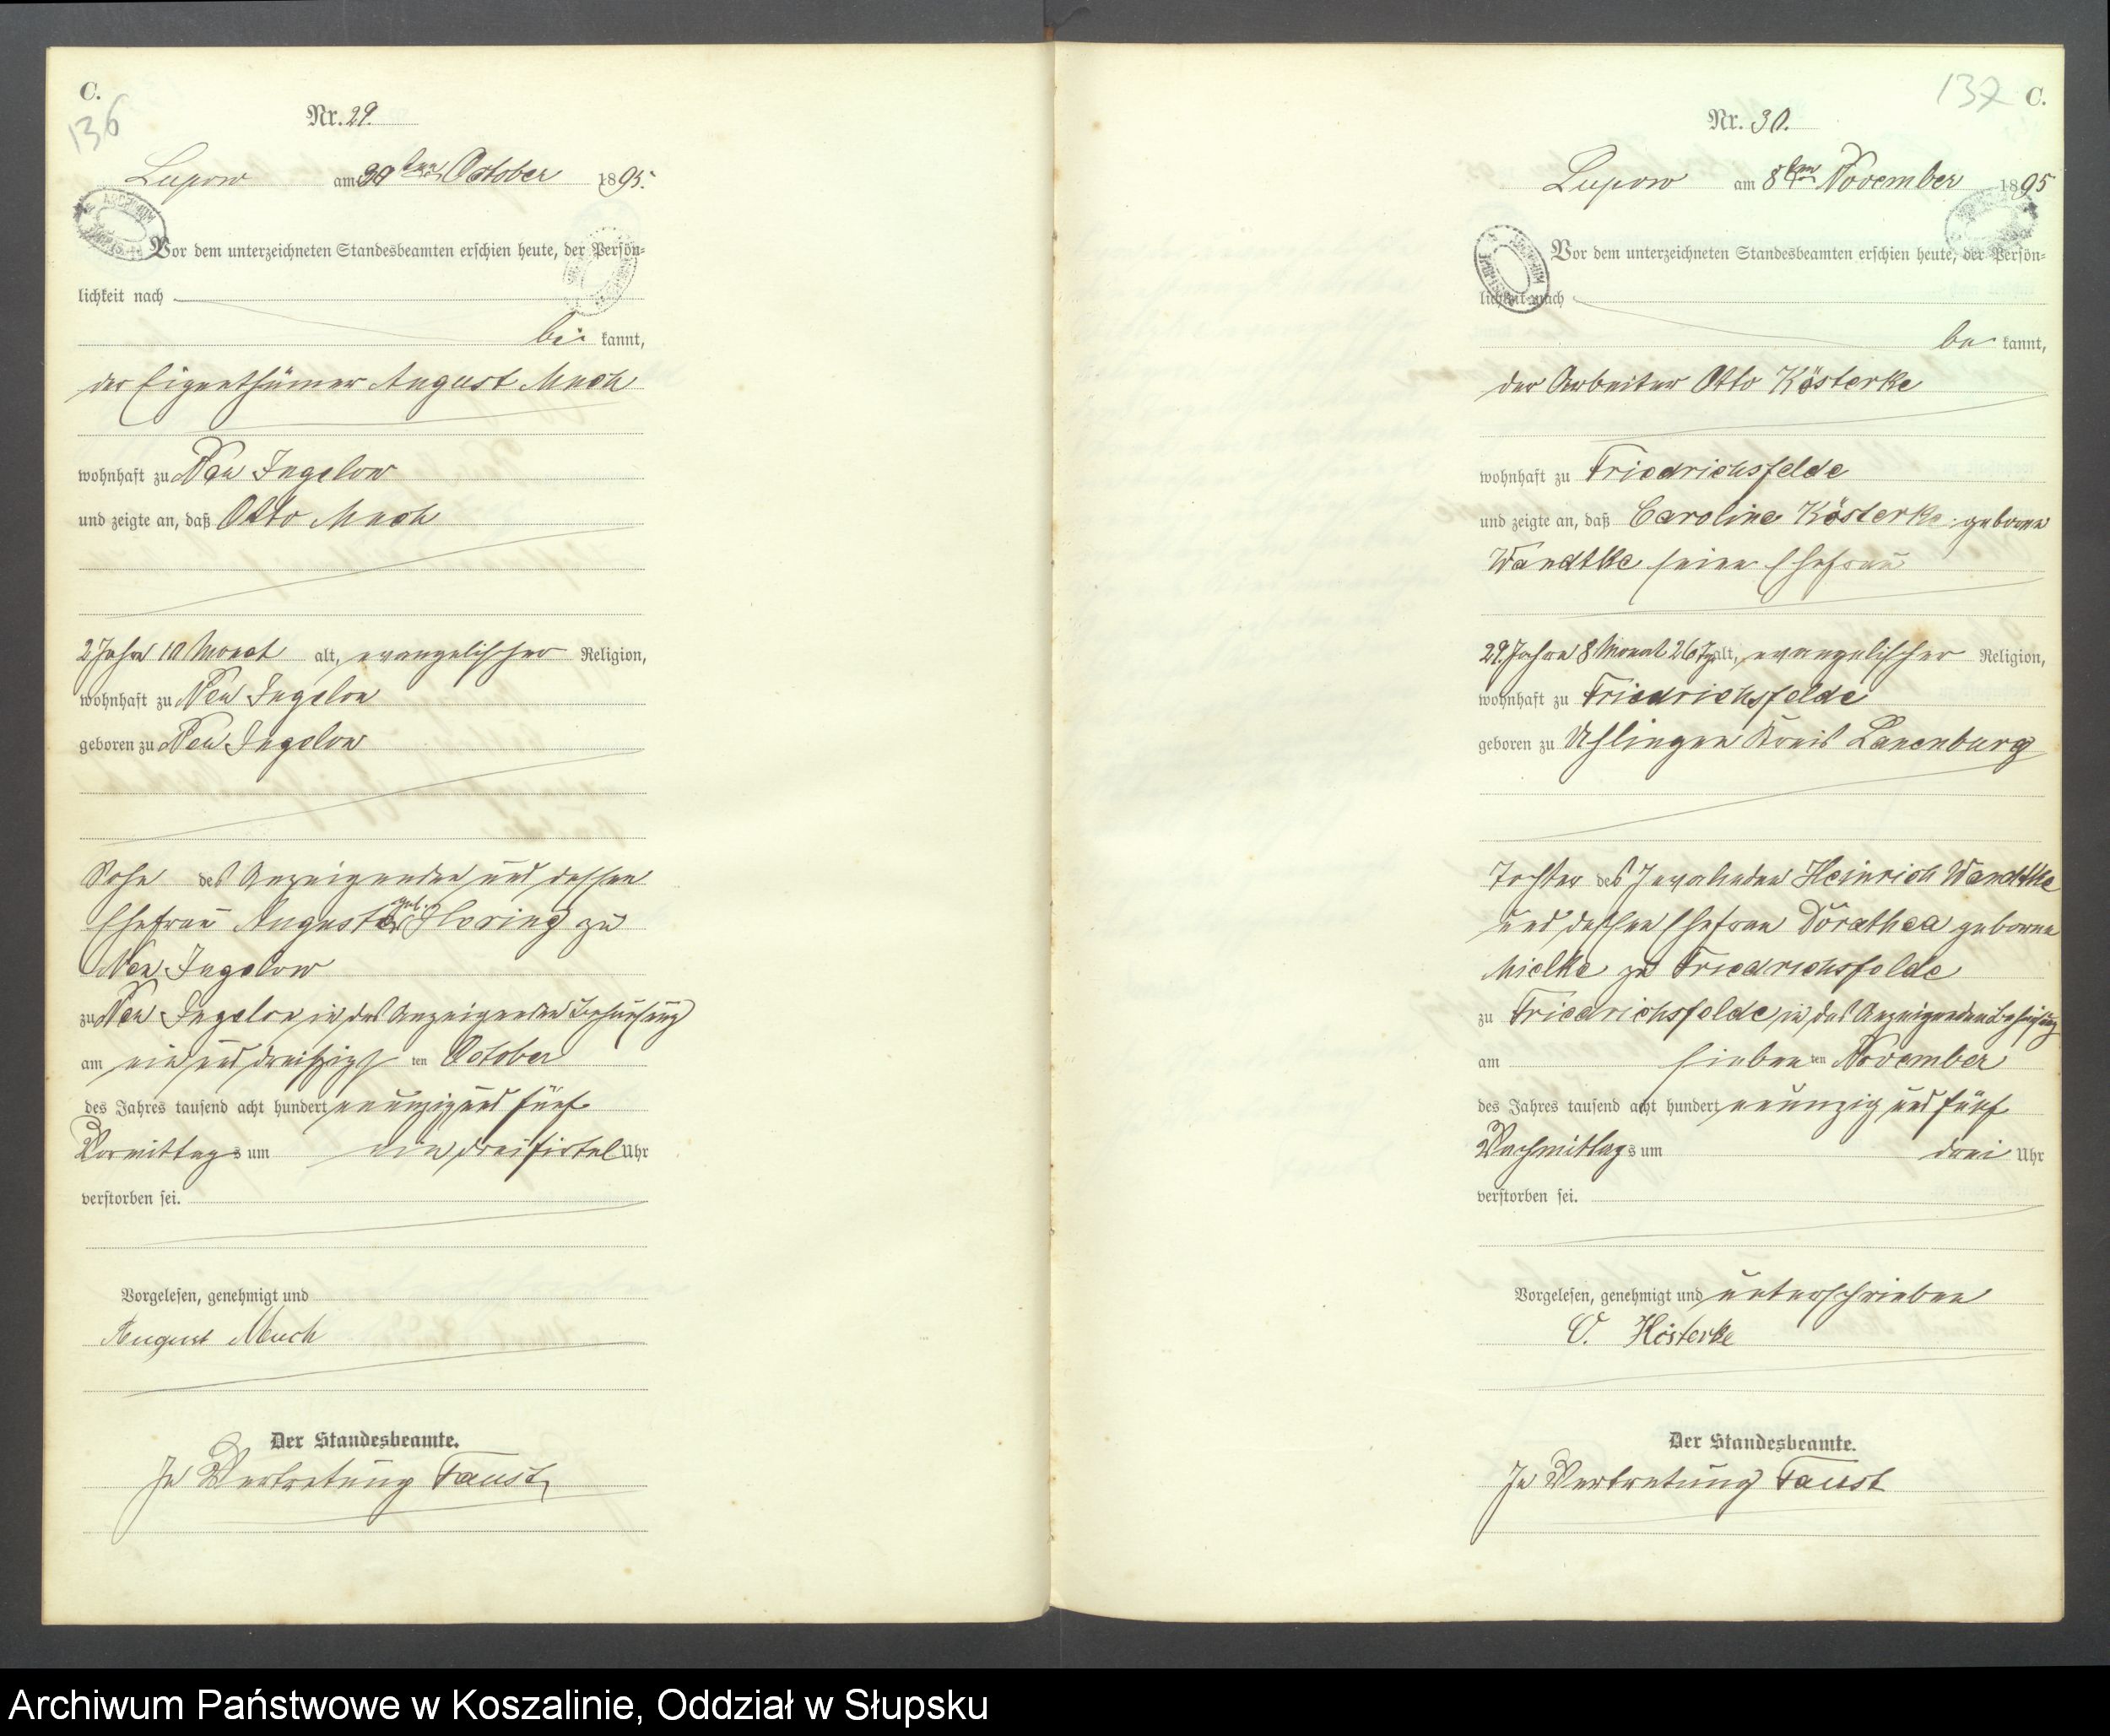 C.
136
Nr. 29.
Lupow am 30ten October 1895.
Vor dem unterzeichneten Standesbeamten erschien heute, der Persön-
lichkeit nach
be kannt,
der Eigenthümer August Much
wohnhaft zu Neu Jugelow
und zeigte an, daß Otto Much
2 Jahre 10 Monat alt, evangelischer Religion,
wohnhaft zu Neu Jugelow
geboren zu Neu Jugelow
Sohn des Anzeigenden und dessen
Ehefrau Auguste geb. Floring zu
Neu Jugelow
zu Neu Jugelow in des Anzeigenden Behausung
am ein und dreißigsten October
des Jahres tausend acht hundert neunzig und fünf
Vormittags um ein dreifirtel Uhr
verstorben sei.
Vorgelesen, genehmigt und
August Much
Der Standesbeamte.
In Vertretung Faust
137 C.
Nr. 30.
Lupow am 8ten November 1895
Vor dem unterzeichneten Standesbeamten erschien heute, der Persön-
lichkeit nach
be kannt,
der Arbeiter Otto Kösterke
wohnhaft zu Friedrichsfelde
und zeigte an, daß Caroline Kösterke geborne
Wandtke seine Ehefrau
29 Jahre 8 Monat 26 Tg alt, evangelischer Religion,
wohnhaft zu Friedrichsfelde
geboren zu Uhlingen Kreis Lauenburg
Tochter des Invaliden Heinrich Wandtke
und dessen Ehefrau Dorathea geborne
Mielke zu Friedrichsfelde
zu Friedrichsfelde in des Anzeigenden Behausung
am siebenten November
des Jahres tausend acht hundert neunzig und fünf
Nachmittags um drei Uhr
verstorben sei.
Vorgelesen, genehmigt und unterschrieben
O. Kösterke
Der Standesbeamte.
In Vertretung Faust
Archiwum Państwowe w Koszalinie, Oddział w Słupsku